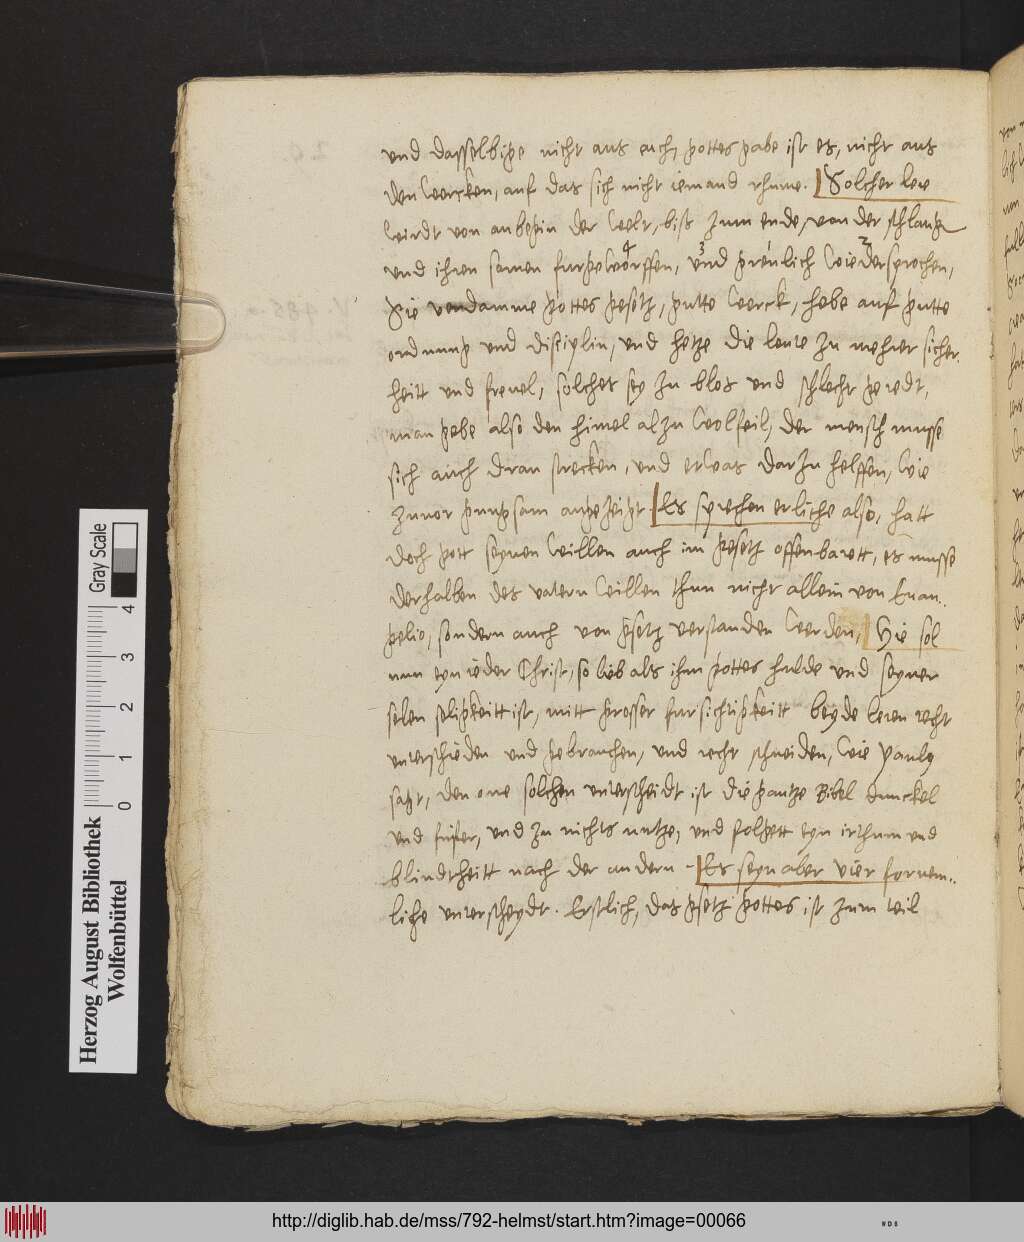 und dasselbige nicht aus euch, gottes gabe ist es, nicht aus
den wercken, auf das sich nicht iemand rhume. Solcher lere
wirdt von anbegin der welt, bist zum ende, von der schlang
und ihren samen furgeworffen, und greulich widersprochen,
Sie verdamme gottes gesetz, gutte werck, hebe auf gutte
ordnung und disciplin, und hetze die leute zu mehrer sicher
heitt und frevel, solches sey zu blos und schlecht geredt,
man gebe also den himel alzu wolfeil, der mensch musse
sich auch dran strecken, und etwas darzu helffen, wie
zuvor gnugsam angezeigt Es sprechen etliche also, hatt
doch gott seynen willen auch im gesetz offenbarett, es musse
derhalben des vatern willen thun nicht allein von Euan..
gelio, sondern auch von gsetz verstanden werden, Hie sol
nun eyn ieder Christ, so lieb als ihm gottes hulde und seyner
selen seligkeitt ist, mitt grosser fursichtigkeitt beyde leren recht
unterschieden und gebrauchen, und recht schneiden, wie Paulus
sagt, den one solchen unterscheidt ist die gantze Bibel dunckel
und finster, und zu nichts nutze, und folgett eyn irthum und
blindtheitt nach der andern - Es seyn aber vier fornem..
liche unterscheydt. Erstlich, das gsetz gottes ist zum teil
4 3 1 2
Herzog August Bibliothek
Wolfenbüttel
Gray Scale
0 1 2 3 4
http://diglib.hab.de/mss/792-helmst/start.htm?image=00066